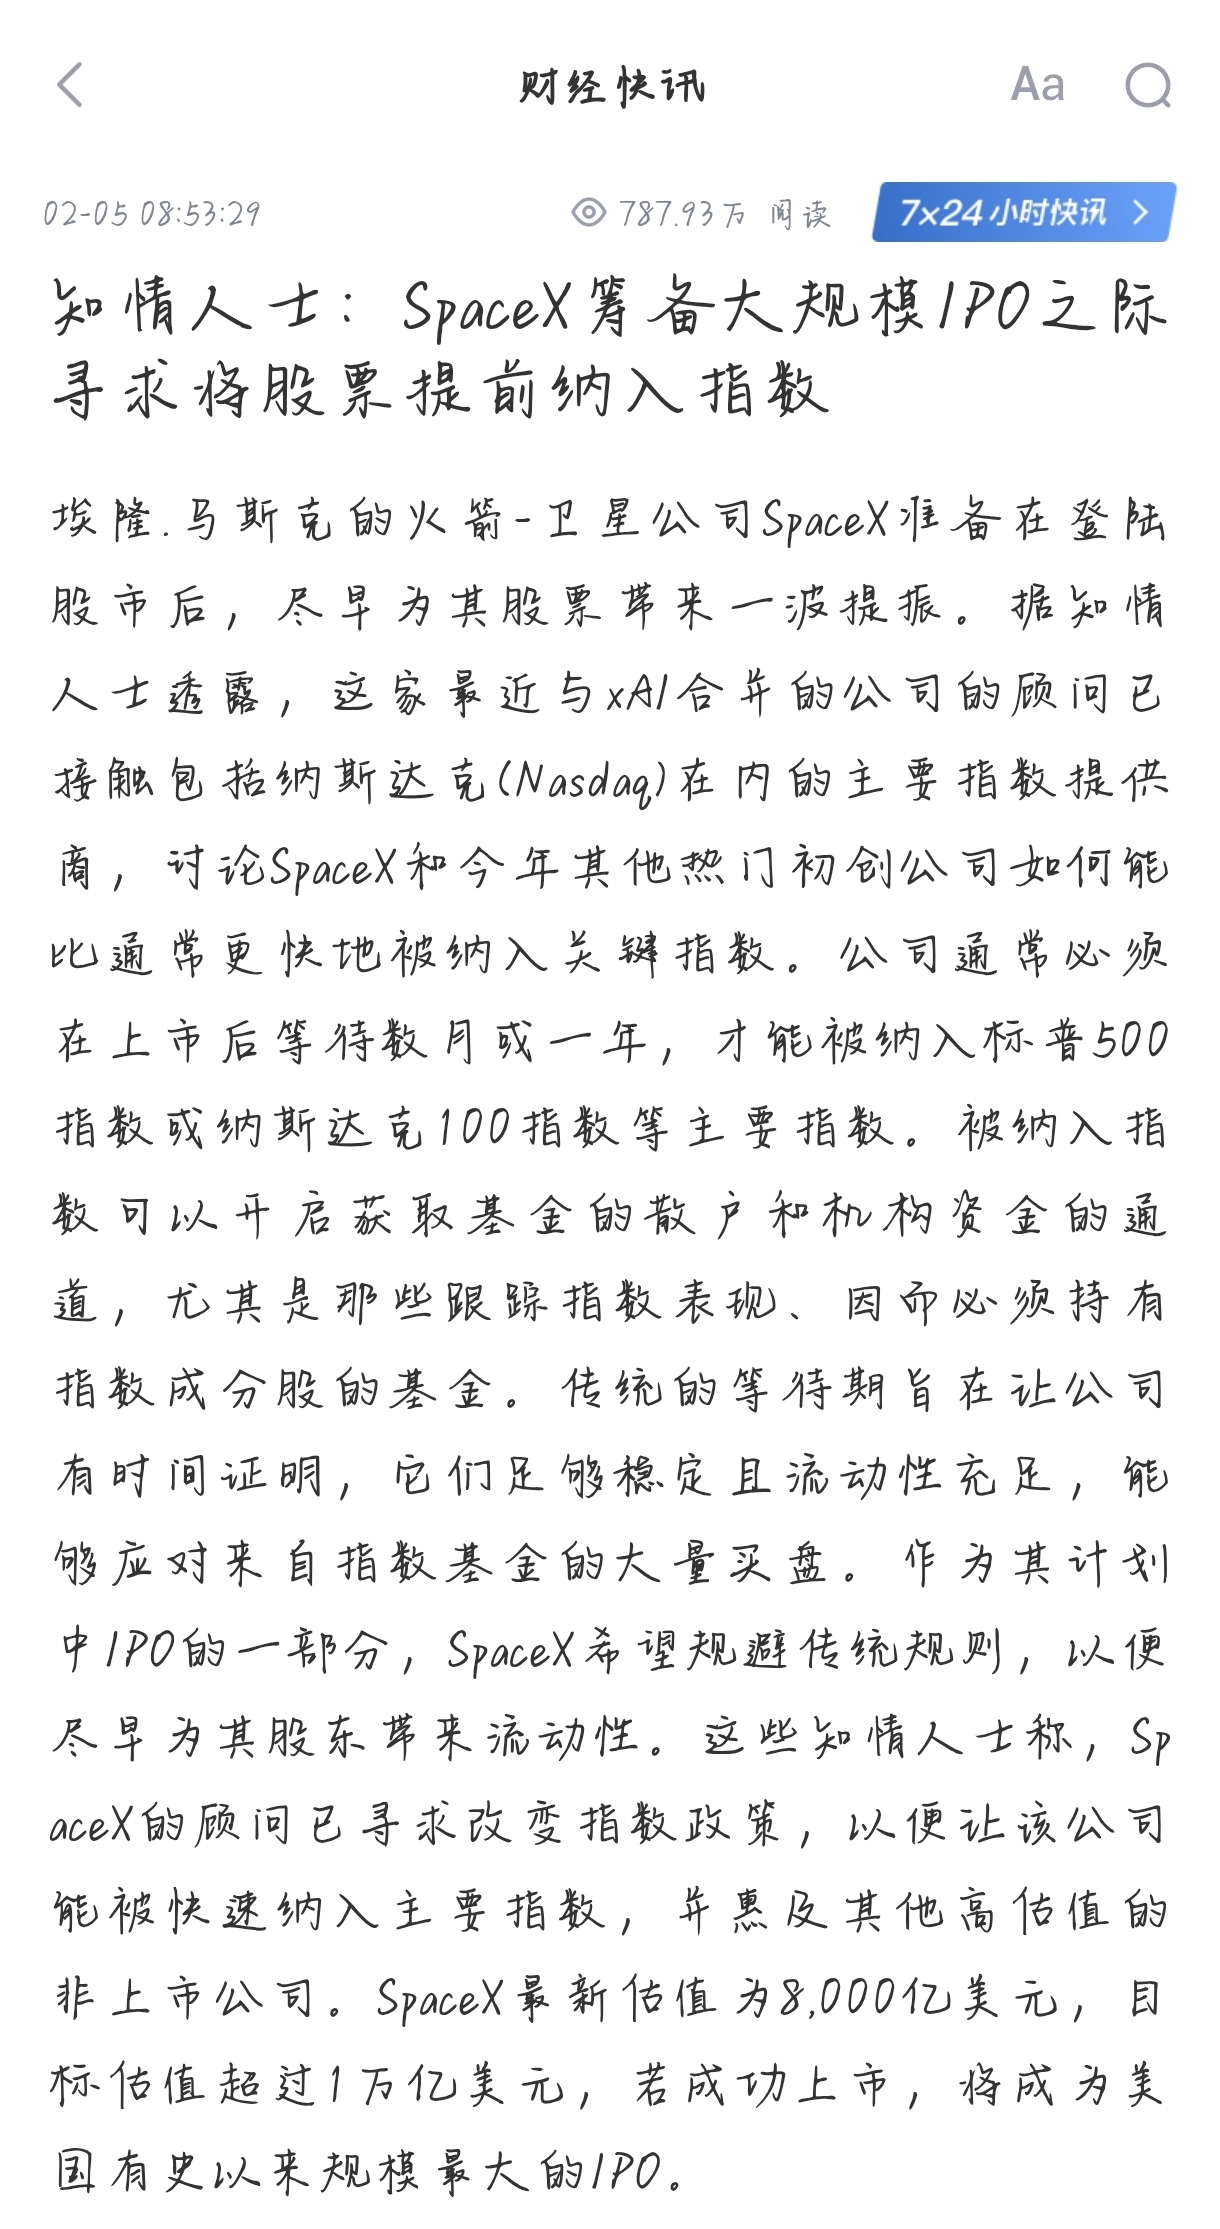 财经快讯
Aa
02-05 08:53:29
787.93万 阅读
7×24小时快讯
知情人士：SpaceX筹备大规模IPO之际
寻求将股票提前纳入指数
埃隆.马斯克的火箭-卫星公司SpaceX准备在登陆
股市后，尽早为其股票带来一波提振。据知情
人士透露，这家最近与xAI合并的公司的顾问已
接触包括纳斯达克(Nasdaq)在内的主要指数提供
商，讨论SpaceX和今年其他热门初创公司如何能
比通常更快地被纳入关键指数。公司通常必须
在上市后等待数月或一年，才能被纳入标普500
指数或纳斯达克100指数等主要指数。被纳入指
数可以开启获取基金的散户和机构资金的通
道，尤其是那些跟踪指数表现、因而必须持有
指数成分股的基金。传统的等待期旨在让公司
有时间证明，它们足够稳定且流动性充足，能
够应对来自指数基金的大量买盘。作为其计划
中IPO的一部分，SpaceX希望规避传统规则，以便
尽早为其股东带来流动性。这些知情人士称，Sp
aceX的顾问已寻求改变指数政策，以便让该公司
能被快速纳入主要指数，并惠及其他高估值的
非上市公司。SpaceX最新估值为8,000亿美元，目
标估值超过1万亿美元，若成功上市，将成为美
国有史以来规模最大的IPO。